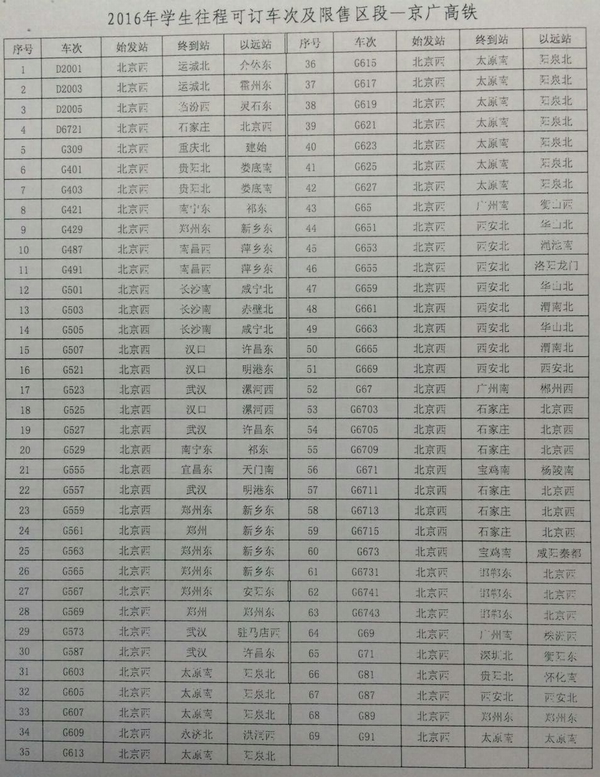 2016年学生往程可订车次及限售区段—京广高铁
序号 车次 始发站 终到站 以远站 36 G615 北京西 太原南 阳泉北
1 D2001 北京西 运城北 介休东 37 G617 北京西 太原南 阳泉北
2 D2003 北京西 运城北 霍州东 38 G619 北京西 太原南 阳泉北
3 D2005 北京西 临汾西 灵石东 39 G621 北京西 太原南 阳泉北
4 D6721 北京西 石家庄 北京西 40 G623 北京西 太原南 阳泉北
5 G309 北京西 重庆北 建始 41 G625 北京西 太原南 阳泉北
6 G401 北京西 贵阳北 娄底南 42 G627 北京西 太原南 阳泉北
7 G403 北京西 贵阳北 娄底南 43 G65 北京西 广州南 衡山西
8 G421 北京西 南宁东 祁东 44 G651 北京西 西安北 华山北
9 G429 北京西 郑州东 新乡东 45 G653 北京西 西安北 渑池南
10 G487 北京西 南昌西 萍乡东 46 G655 北京西 西安北 洛阳龙门
11 G491 北京西 南昌西 萍乡东 47 G659 北京西 西安北 华山北
12 G501 北京西 长沙南 咸宁北 48 G661 北京西 西安北 渭南北
13 G503 北京西 长沙南 赤壁北 49 G663 北京西 西安北 华山北
14 G505 北京西 长沙南 咸宁北 50 G665 北京西 西安北 渭南北
15 G507 北京西 汉口 许昌东 51 G669 北京西 西安北 西安北
16 G521 北京西 汉口 明港东 52 G67 北京西 广州南 郴州西
17 G523 北京西 武汉 漯河西 53 G6703 北京西 石家庄 北京西
18 G525 北京西 汉口 漯河西 54 G6705 北京西 石家庄 北京西
19 G527 北京西 武汉 许昌东 55 G6709 北京西 石家庄 北京西
20 G529 北京西 南宁东 祁东 56 G671 北京西 宝鸡南 杨陵南
21 G555 北京西 宜昌东 天门南 57 G6711 北京西 石家庄 北京西
22 G557 北京西 武汉 明港东 58 G6713 北京西 石家庄 北京西
23 G559 北京西 郑州东 新乡东 59 G6715 北京西 石家庄 北京西
24 G561 北京西 郑州 新乡东 60 G673 北京西 宝鸡南 咸阳秦都
25 G563 北京西 郑州东 新乡东 61 G6731 北京西 邯郸东 北京西
26 G565 北京西 郑州东 新乡东 62 G6741 北京西 邯郸东 北京西
27 G567 北京西 郑州东 安阳东 63 G6743 北京西 邯郸东 北京西
28 G569 北京西 郑州 郑州东 64 G69 北京西 广州南 株洲西
29 G573 北京西 武汉 驻马店西 65 G71 北京西 深圳北 衡阳东
30 G587 北京西 武汉 许昌东 66 G81 北京西 贵阳北 怀化南
31 G603 北京西 太原南 阳泉北 67 G87 北京西 西安北 西安北
32 G605 北京西 太原南 阳泉北 68 G89 北京西 郑州东 郑州东
33 G607 北京西 太原南 阳泉北 69 G91 北京西 太原南 太原南
34 G609 北京西 永济北 洪洞西
35 G613 北京西 太原南 阳泉北